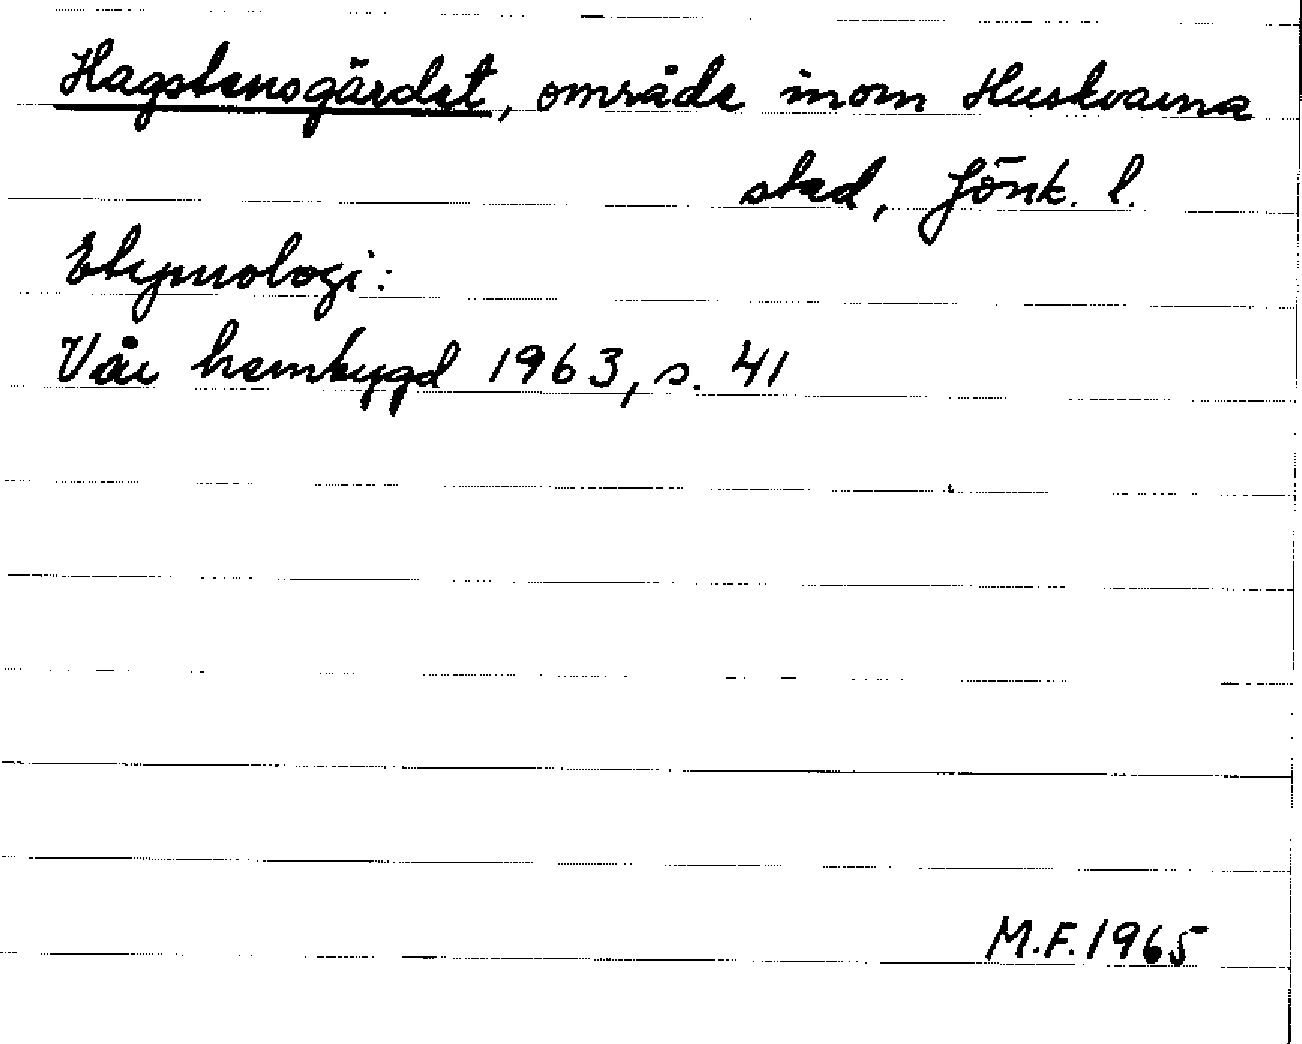 Hagstensgärdet, område inom Huskvarna
stad, Jönk. l.
Etymologi:
Vår hembygd 1963, s. 41
M.F. 1965